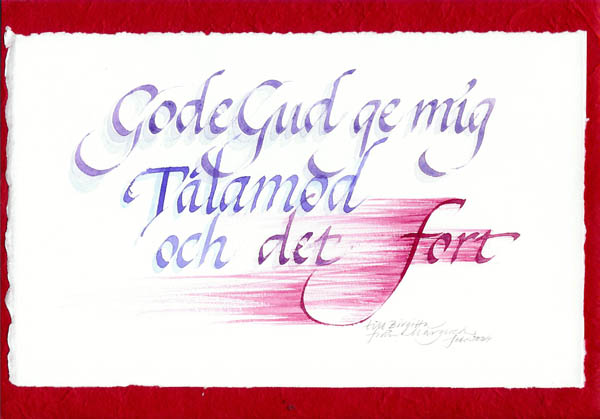 Gode Gud ge mig
Tålamod
och det fort
till Birgitta
från Margareta